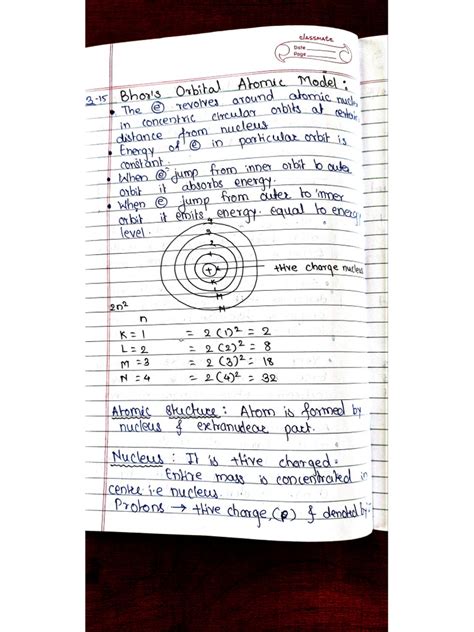 classmate
Date
Page
3-15 Bhor's Orbital Atomic Model :
• The ⓔ revolves around atomic nucle
in concentric circular orbits at certain
distance from nucleus
• Energy of ⓔ in particular orbit is
constant.
• When ⓔ jump from inner orbit to outer
orbit it absorbs energy.
• When ⓔ jump from outer to inner
orbit it emits energy equal to energy
level.
4
3
2
1
+
K
L
M
N
+tive charge nucleus
2n²
n
K = 1 = 2(1)² = 2
L = 2 = 2(2)² = 8
M = 3 = 2(3)² = 18
N = 4 = 2(4)² = 32
Atomic Structure : Atom is formed by
nucleus & extranuclear part.
Nucleus : It is +tive charged.
Entire mass is concentrated in
centre i.e nucleus.
Protons → +tive charge, (P) & denoted by :-